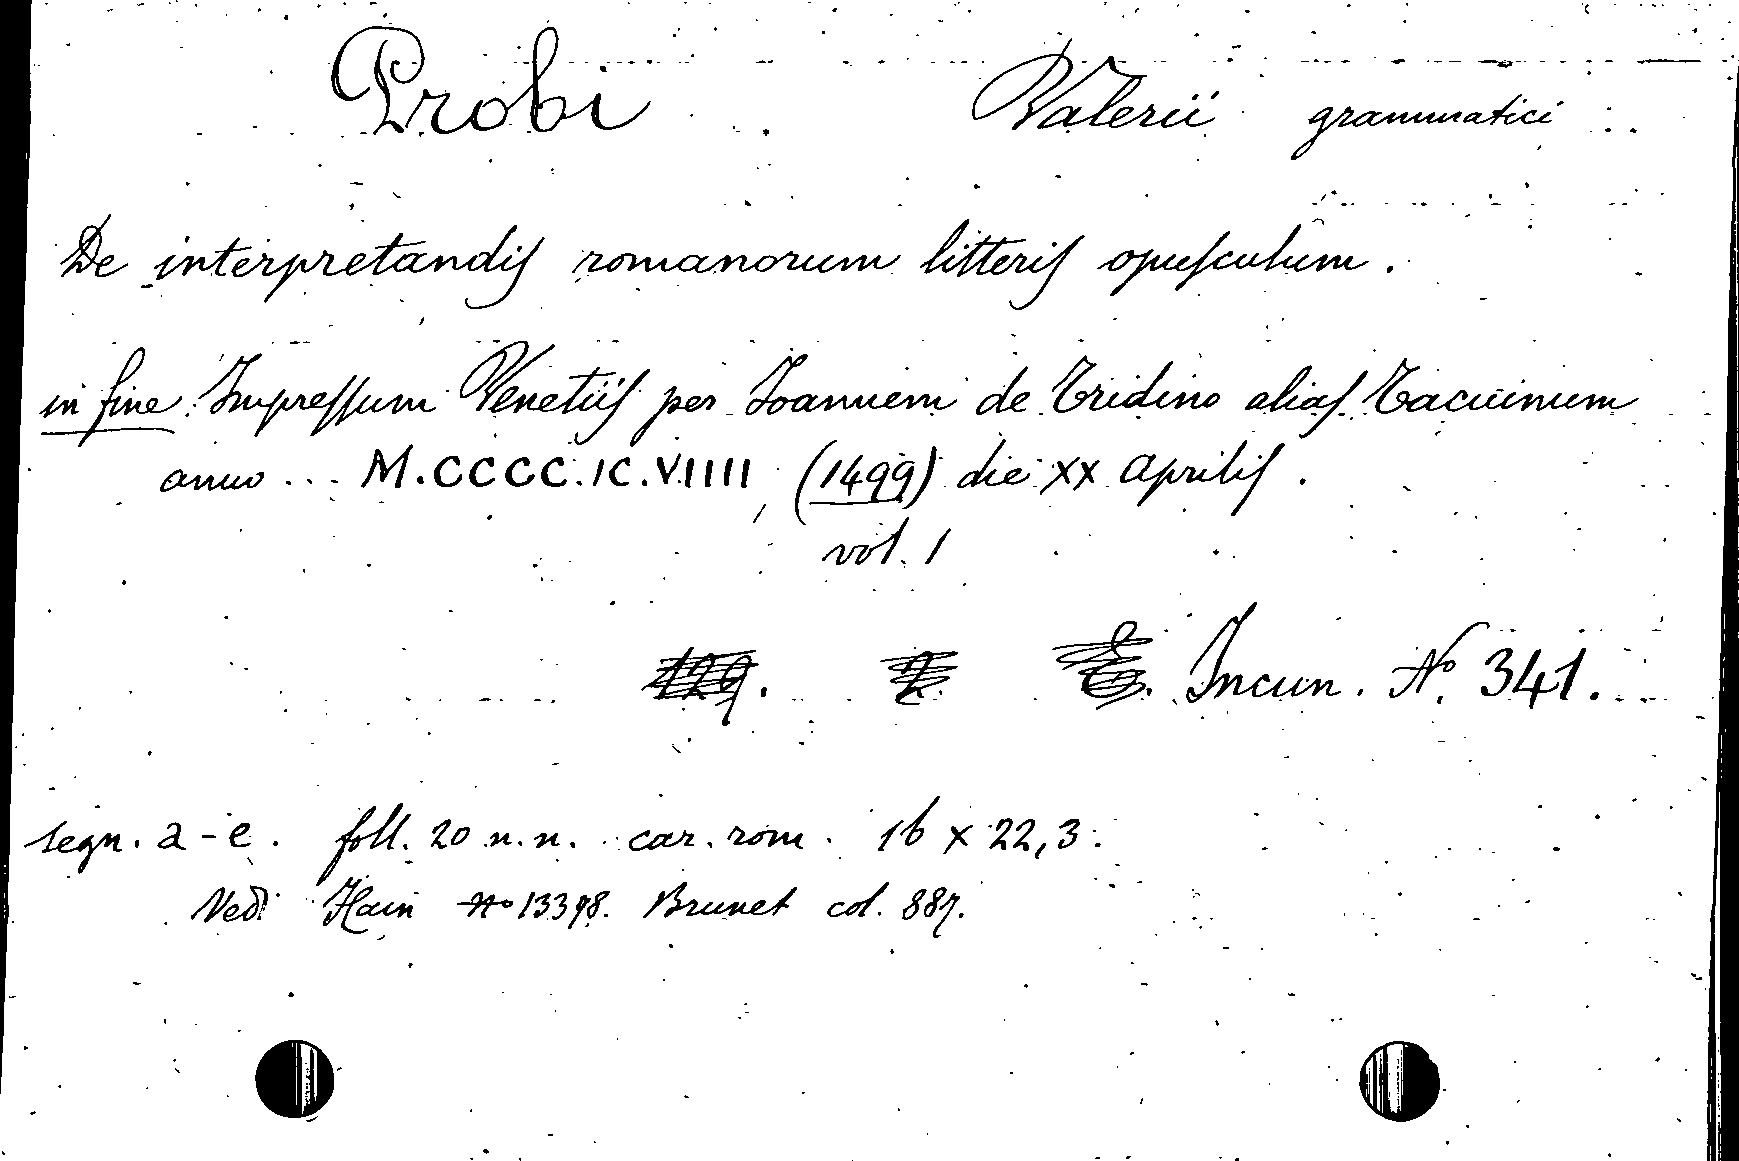 Probi Valerii grammatici
De interpretandiſ romanorum litteriſ opuſculum.
in fine Impreſſum Venetiiſ per Joannem de Tridino aliaſ Tacuinum
anno ... M.CCCC.IC.VIIII (1499) die XX Apriliſ.
vol. 1
129. 2. Incun. Nº 341.
segn. a-e. foll. 20 n.n. car. rom. 16 x 22,3.
Vedi Hain Nº 13398. Brunet col. 887.